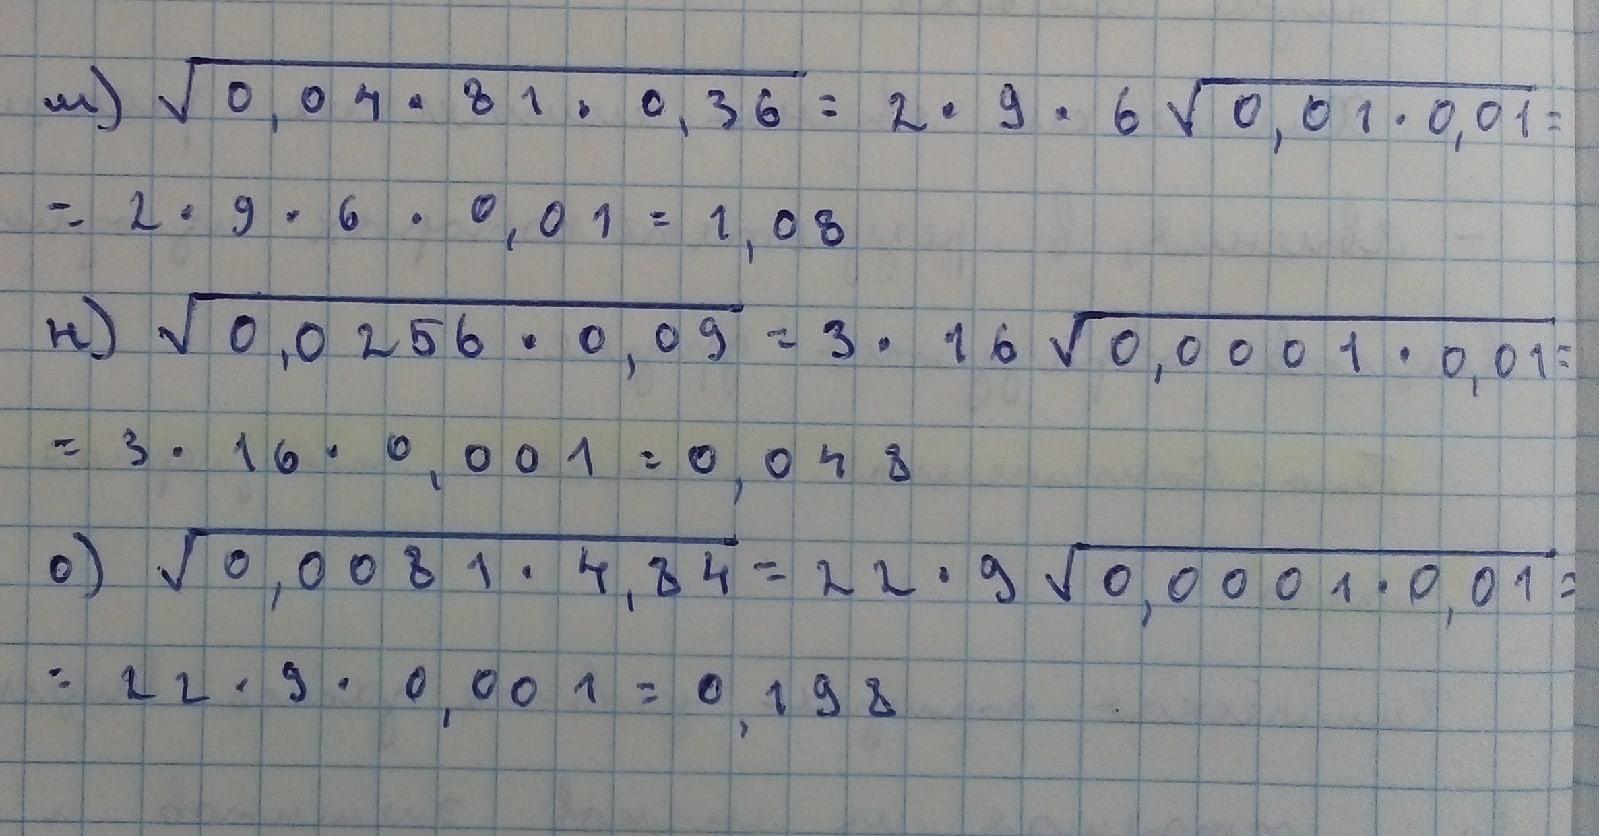 м) √0,04·81·0,36 = 2·9·6√0,01·0,01 =
= 2·9·6·0,01 = 1,08
н) √0,0256·0,09 = 3·16√0,0001·0,01 =
= 3·16·0,001 = 0,048
о) √0,0081·4,84 = 22·9√0,0001·0,01 =
= 22·9·0,001 = 0,198